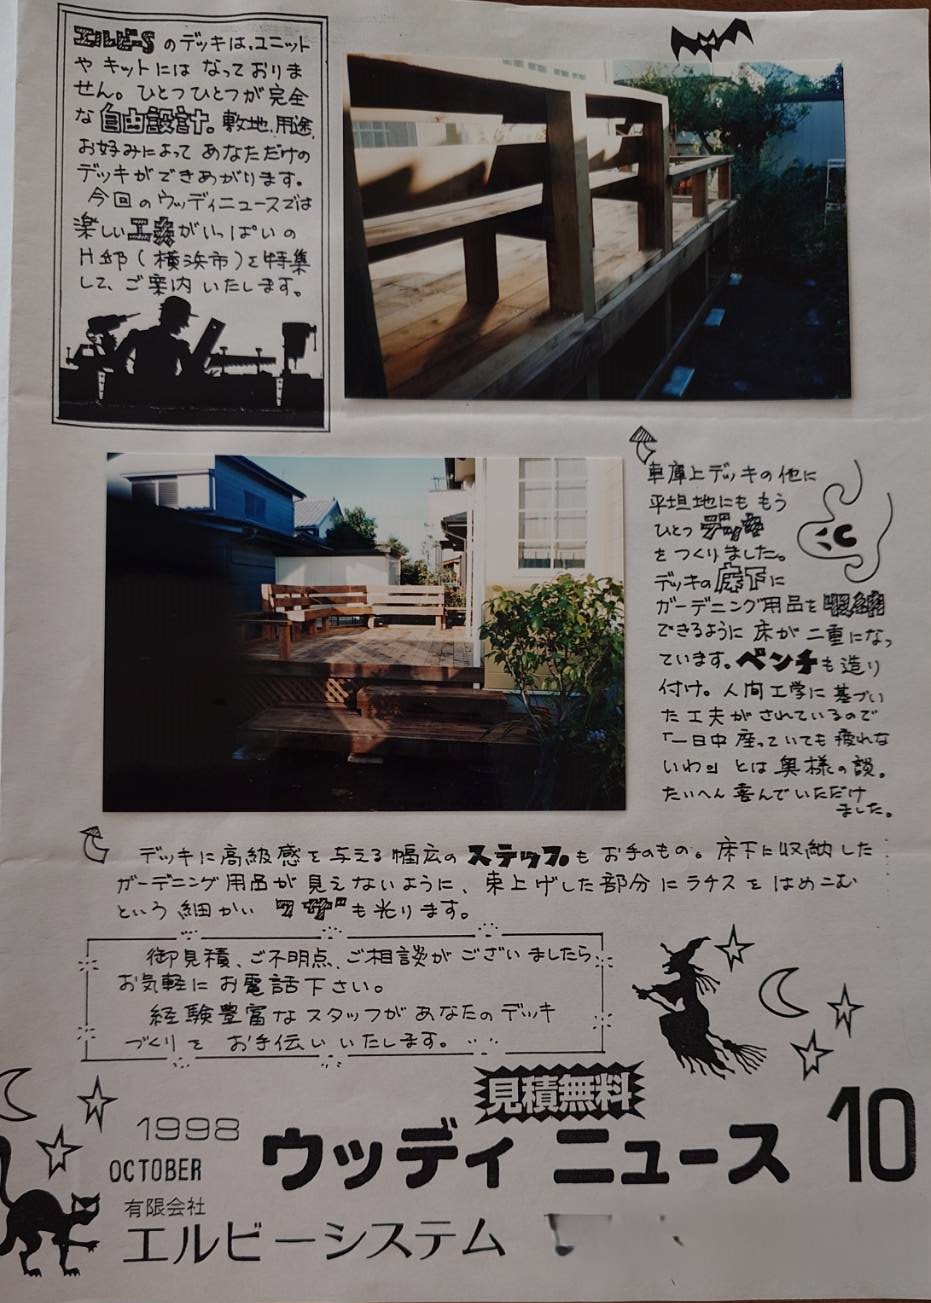 エルビーSのデッキは、ユニット
や キットには なっておりま
せん。ひとつひとつが完全
な自由設計。敷地、用途、
お好みによって あなただけの
デッキができあがります。
今回のウッディニュースでは
楽しい工夫がいっぱいの
H邸(横浜市)を特集
して、ご案内いたします。
車庫上デッキの他に
平坦地にも もう
ひとつ デッキ
をつくりました。
デッキの床下に
ガーデニング用品を収納
できるように床が二重になっ
ています。ベンチも造り
付け。人間工学に基づい
た工夫がされているので
「一日中座っていても疲れな
いわ。」とは奥様の談。
たいへん喜んでいただけ
ました。
デッキに高級感を与える幅広のステップもお手のもの。床下に収納した
ガーデニング用品が見えないように、束上げした部分にラチスをはめこむ
という細かいワザも光ります。
御見積、ご不明点、ご相談がございましたら、
お気軽にお電話下さい。
経験豊富なスタッフがあなたのデッキ
づくりを お手伝いいたします。
見積無料
1998
OCTOBER
ウッディ ニュース 10
有限会社
エルビーシステム